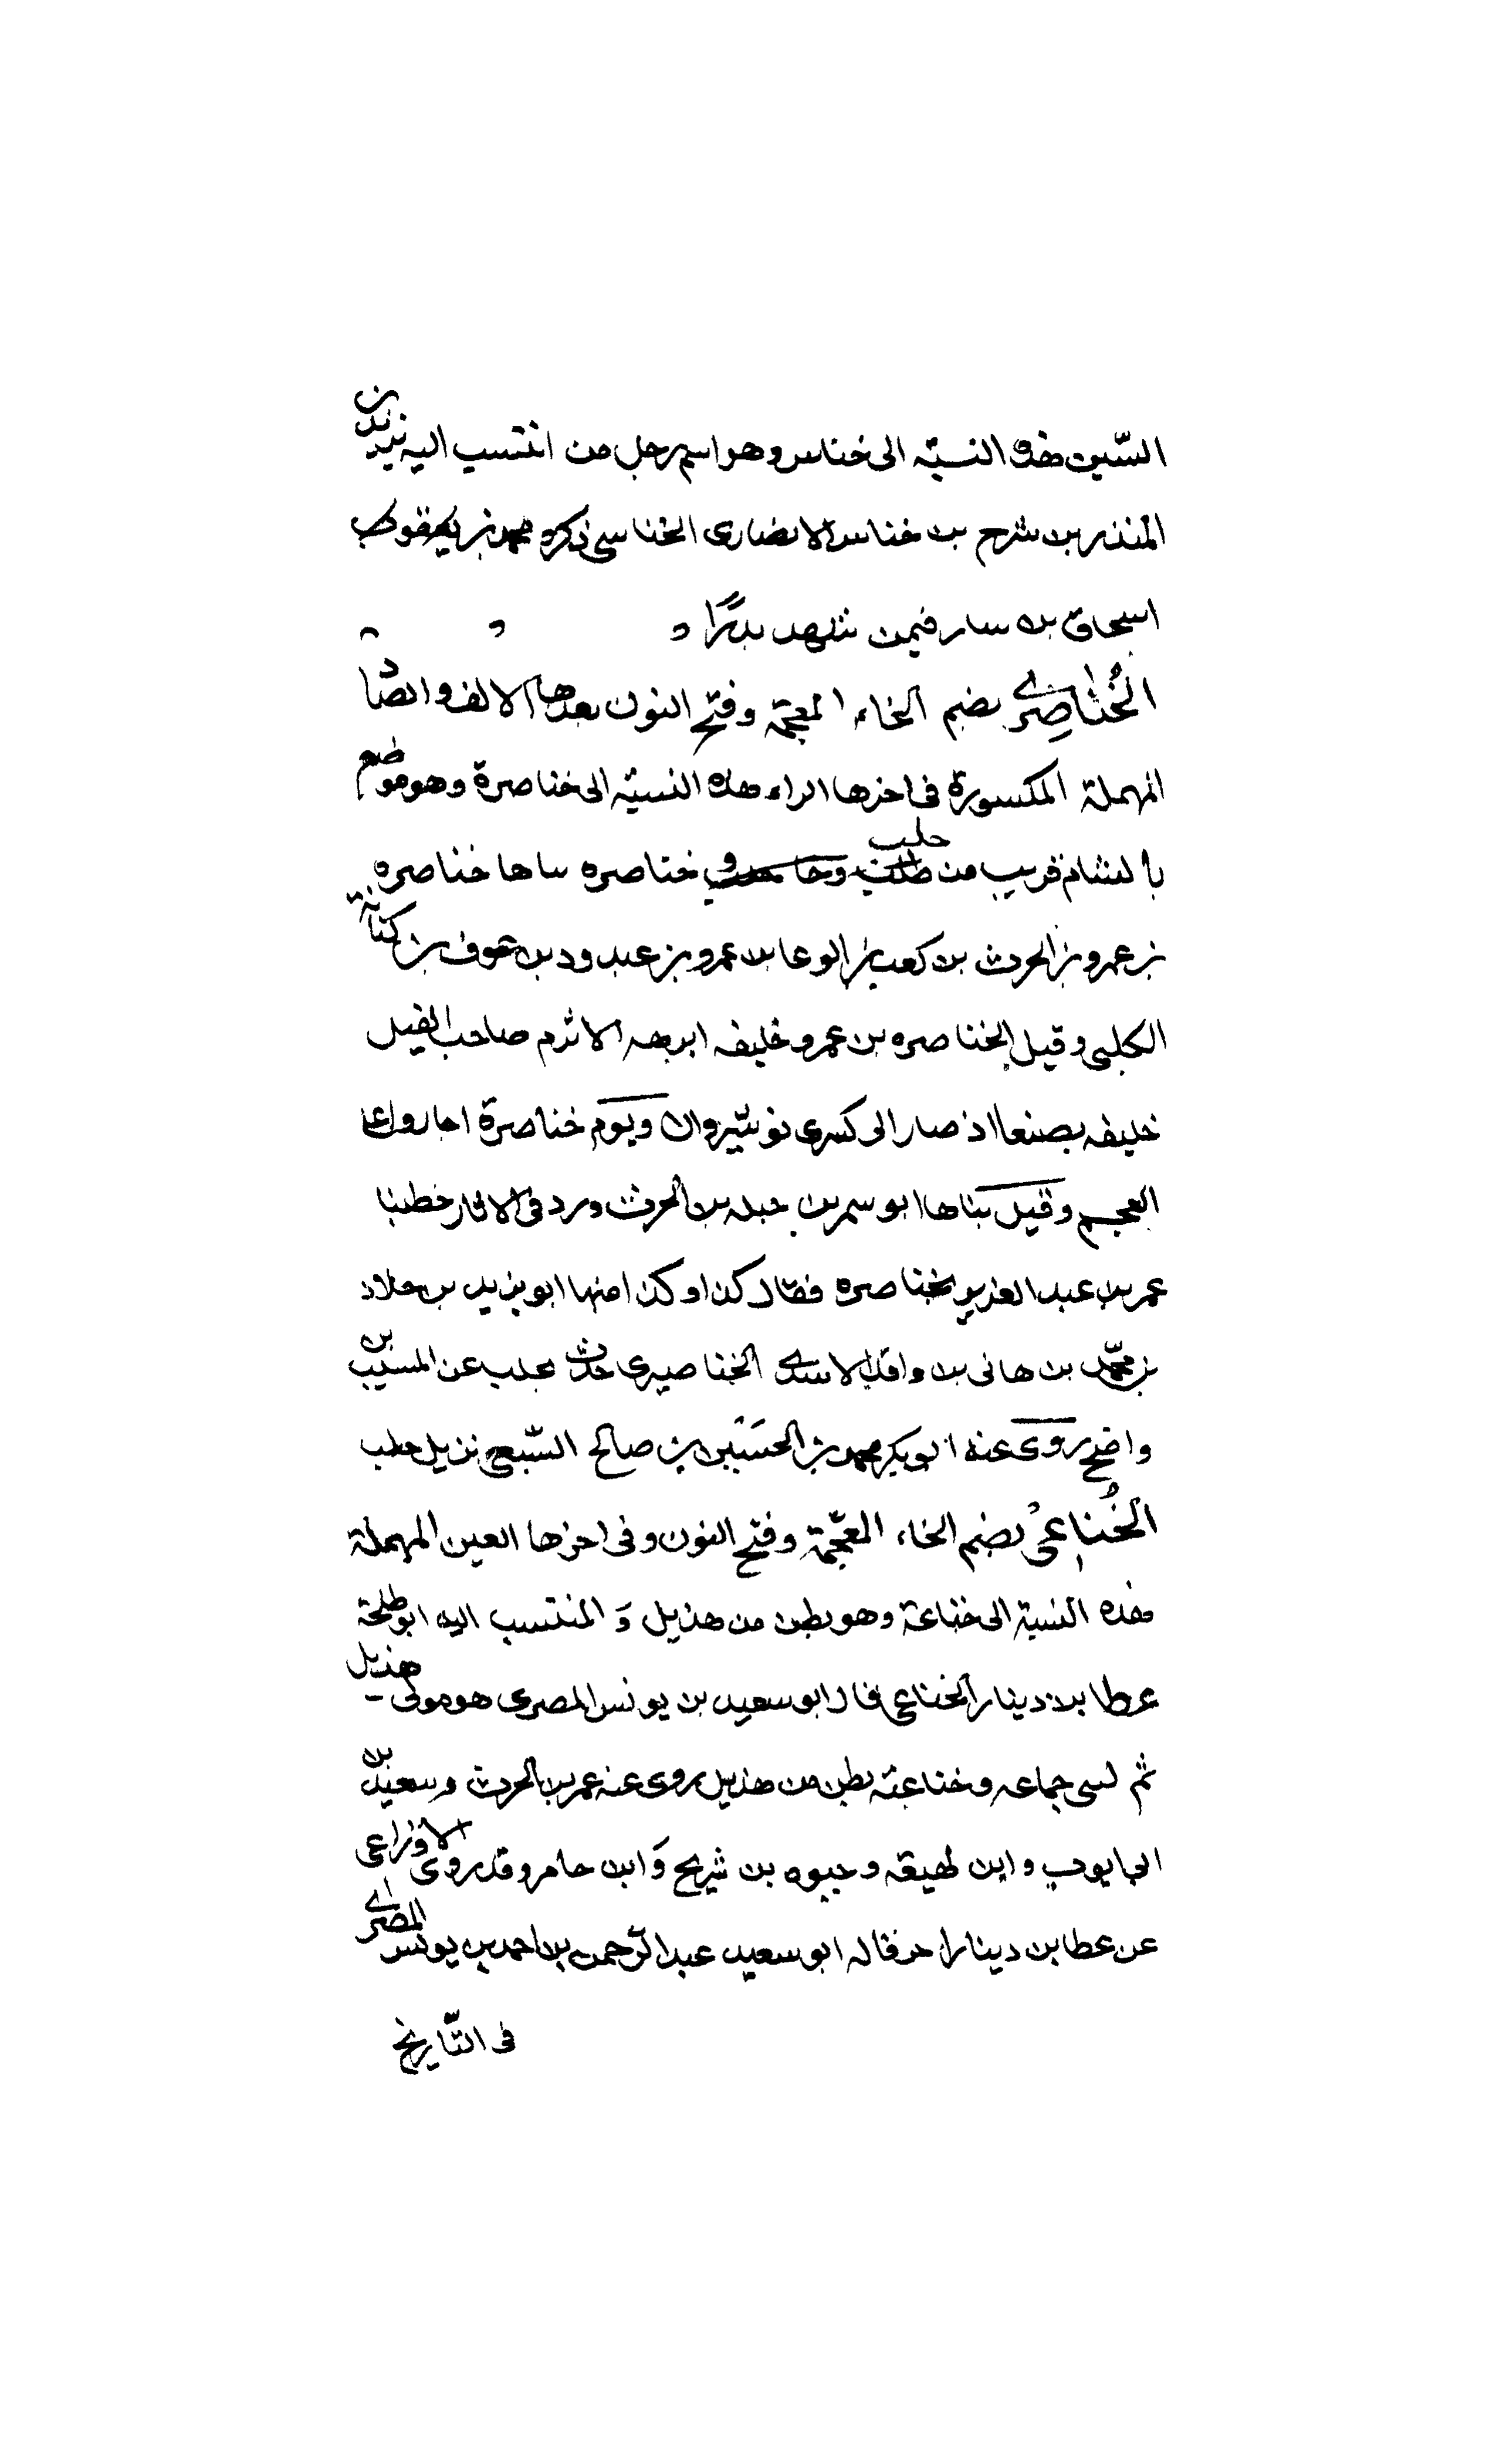 السّين هذه النسبة الى خناس وهو اسم رجل من انتسب اليه يزيد بن
المنذر بن شرح بن خناس الانصارى الخناسى ذكره محمد بن يعقوب
اسحاق بن سار فيمن شهد بدرًا
الخُناصِرى بضم الخاء المعجمة وفتح النون بعدها الالف والصّاد
المهملة المكسورة فى اخرها الراء هذه النسبة الى خناصرة وهو موضع
بالشام قريب من حلب خناصره ساها خناصره
بن عمرو بن الحرث بن كعب بن الوعا بن عمرو بن عبد ود بن عوف بن كنانة
الكلبى وقيل الخناصره بن عمرو خليفه ابرهه الاثرم صاحب الفيل
خليفه بصنعا اذ صار الى كسرى نوشيروان ويوم خناصرة اجاروا على
العجم وقيل بناها ابو سمر بن جبله بن الحرث ورد فى الاثار خطبنا
عمر بن عبد العزيز بخناصره فقال كذا وكذا منها ابو يزيد بن خلاد
بن محمّد بن هانى بن واقد الاسدى الخناصيرى حدث بحلب عن المسيّب بن
واضح روى عنه ابو بكر محمد بن الحسَين بن صالح السّبيعى نزيل حلب
الخُناعىُ بضم الخاء المعجّمة وفتح النون وفى اخرها العين المهملة
هذه النسبة الى خناعة وهو بطن من هذيل وَ المنتسب اليه ابو طلحة
عطا بن دينار الخناعى قال ابو سعيد بن يونس المصرى هو مولى هذيل
ثم لبنى جماعه وخناعة بطن من هذيل روى عنه عمر بن الحرث وسعيد بن
ابى ايوب وابن لهيعه وحيوه بن شريح وَ ابن جامر وقد روى الاوزاعى
عن عطا بن دينار قاله ابو سعيد عبد الرّحمن بن احمد بن يونس المصرى
فى التّاريخ